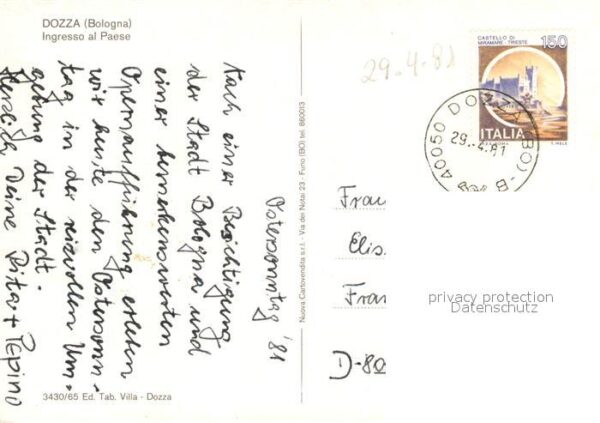 DOZZA (Bologna)
Ingresso al Paese
Ostersonntag '81
Nach einer Besichtigung
der Stadt Bologna und
einer bemerkenswerten
Opernaufführung erleben
wir heute den Ostersonn-
tag in der reizvollen Um-
gebung der Stadt.
Herzlich Deine Rita + Pepino
3430/65 Ed. Tab. Villa - Dozza
Nuova Cartovendita s.r.l. - Via dei Notai 23 - Funo (BO) tel. 860013
29-4-81
CASTELLO DI
MIRAMARE - TRIESTE
150
ITALIA
40050 DOZZA (BO) - B
29.-4.81
Frau
Elis.
Fran
D-80
privacy protection
Datenschutz